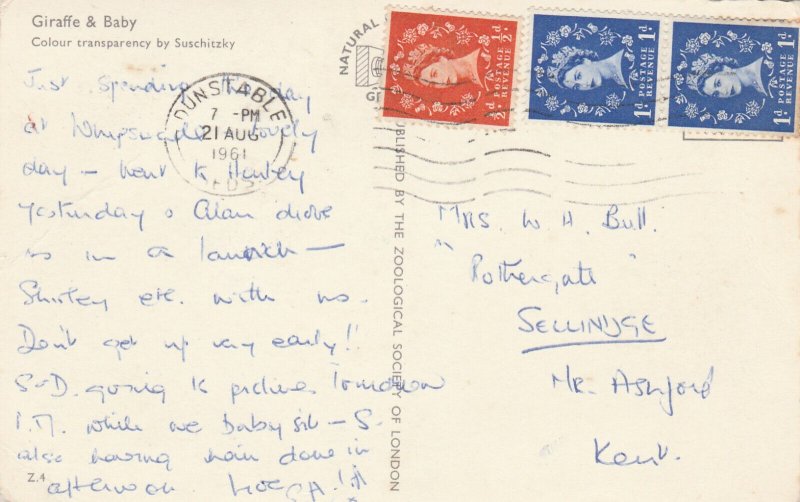 Giraffe & Baby
Colour transparency by Suschitzky
NATURAL
½d POSTAGE REVENUE ½d
1d POSTAGE REVENUE 1d
1d POSTAGE REVENUE 1d
DUNSTABLE
7 - PM
21 AUG
1961
BEDS
Just spending the day
at Whipsnade lovely
day – went to Henley
yesterday & Alan drove
us in a launch –
Shirley etc. with us.
Don't get up very early!!
S & D. going to pictures tomorrow
P.M. while we baby sit – S.
also having hair done in
afternoon
PUBLISHED BY THE ZOOLOGICAL SOCIETY OF LONDON
Mrs. W H. Bull.
"Pothergate"
SELLINDGE
Nr. Ashford
Kent.
Z.4